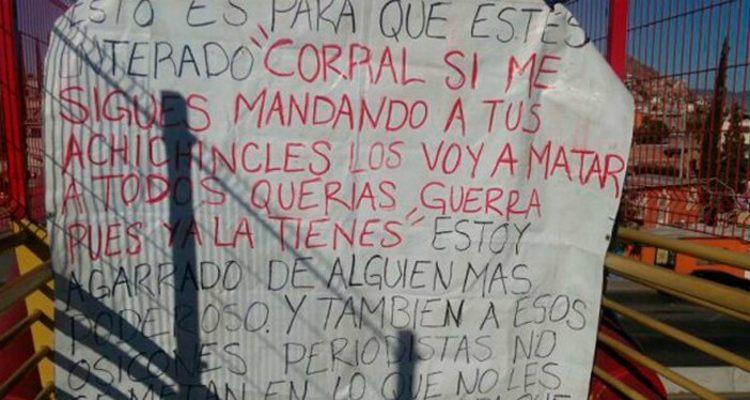 ESTO ES PARA QUE ESTES
ENTERADO "CORRAL SI ME
SIGUES MANDANDO A TUS
ACHICHINCLES LOS VOY A MATAR
A TODOS QUERIAS GUERRA
PUES YA LA TIENES" ESTOY
AGARRADO DE ALGUIEN MAS
PODEROSO. Y TAMBIEN A ESOS
OSICONES PERIODISTAS NO
SE METAN EN LO QUE NO LES